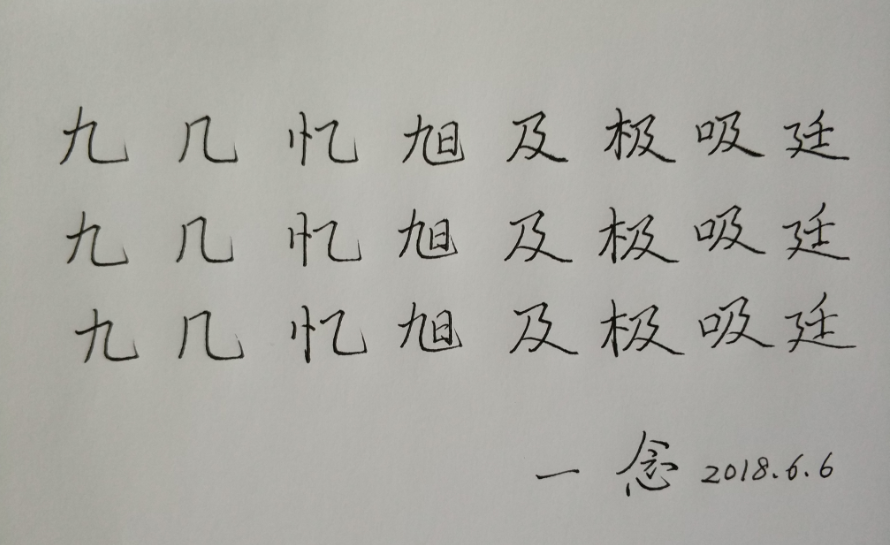 九 几 忆 旭 及 极 吸 廷
九 几 忆 旭 及 极 吸 廷
九 几 忆 旭 及 极 吸 廷
一 念 2018.6.6